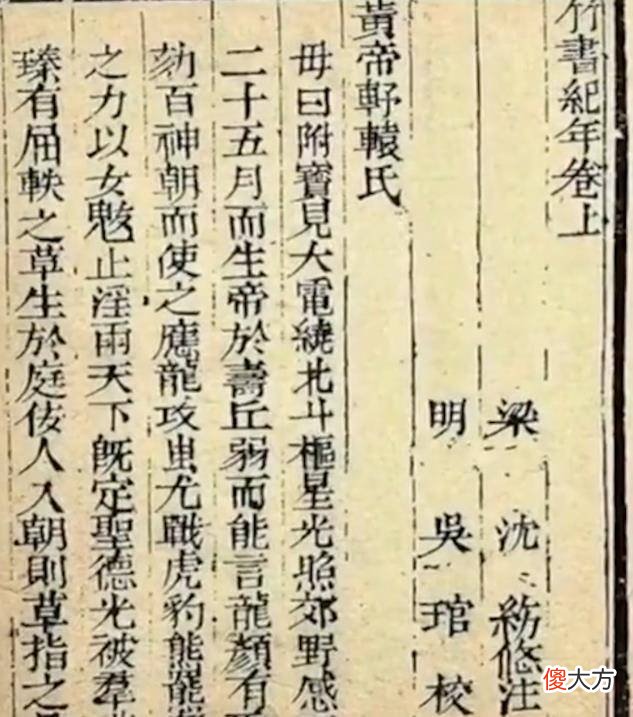 竹書紀年卷上
梁 沈 約 注
明 吳 琯 校
黃帝軒轅氏
母曰附寶見大電繞北斗樞星光照郊野感
二十五月而生帝於壽丘弱而能言龍顏有
劾百神朝而使之應龍攻蚩尤戰虎豹熊羆
之力以女魃止淫雨天下既定聖德光被羣
臻有屈軼之草生於庭佞人入朝則草指之
傻大方